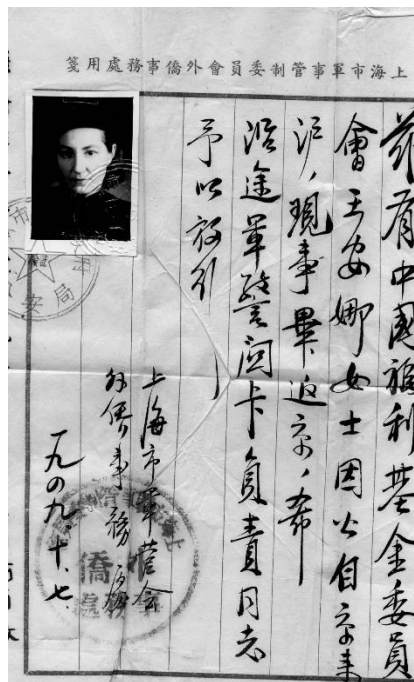 上海市軍事管制委員會外僑事務處用箋
茲有中國福利基金委員
會王安娜女士因公自京来
沪,現事畢返京,希
沿途軍警関卡負責同志
予以放行
上海市軍管会
外僑事務處
一九四九.十.七.